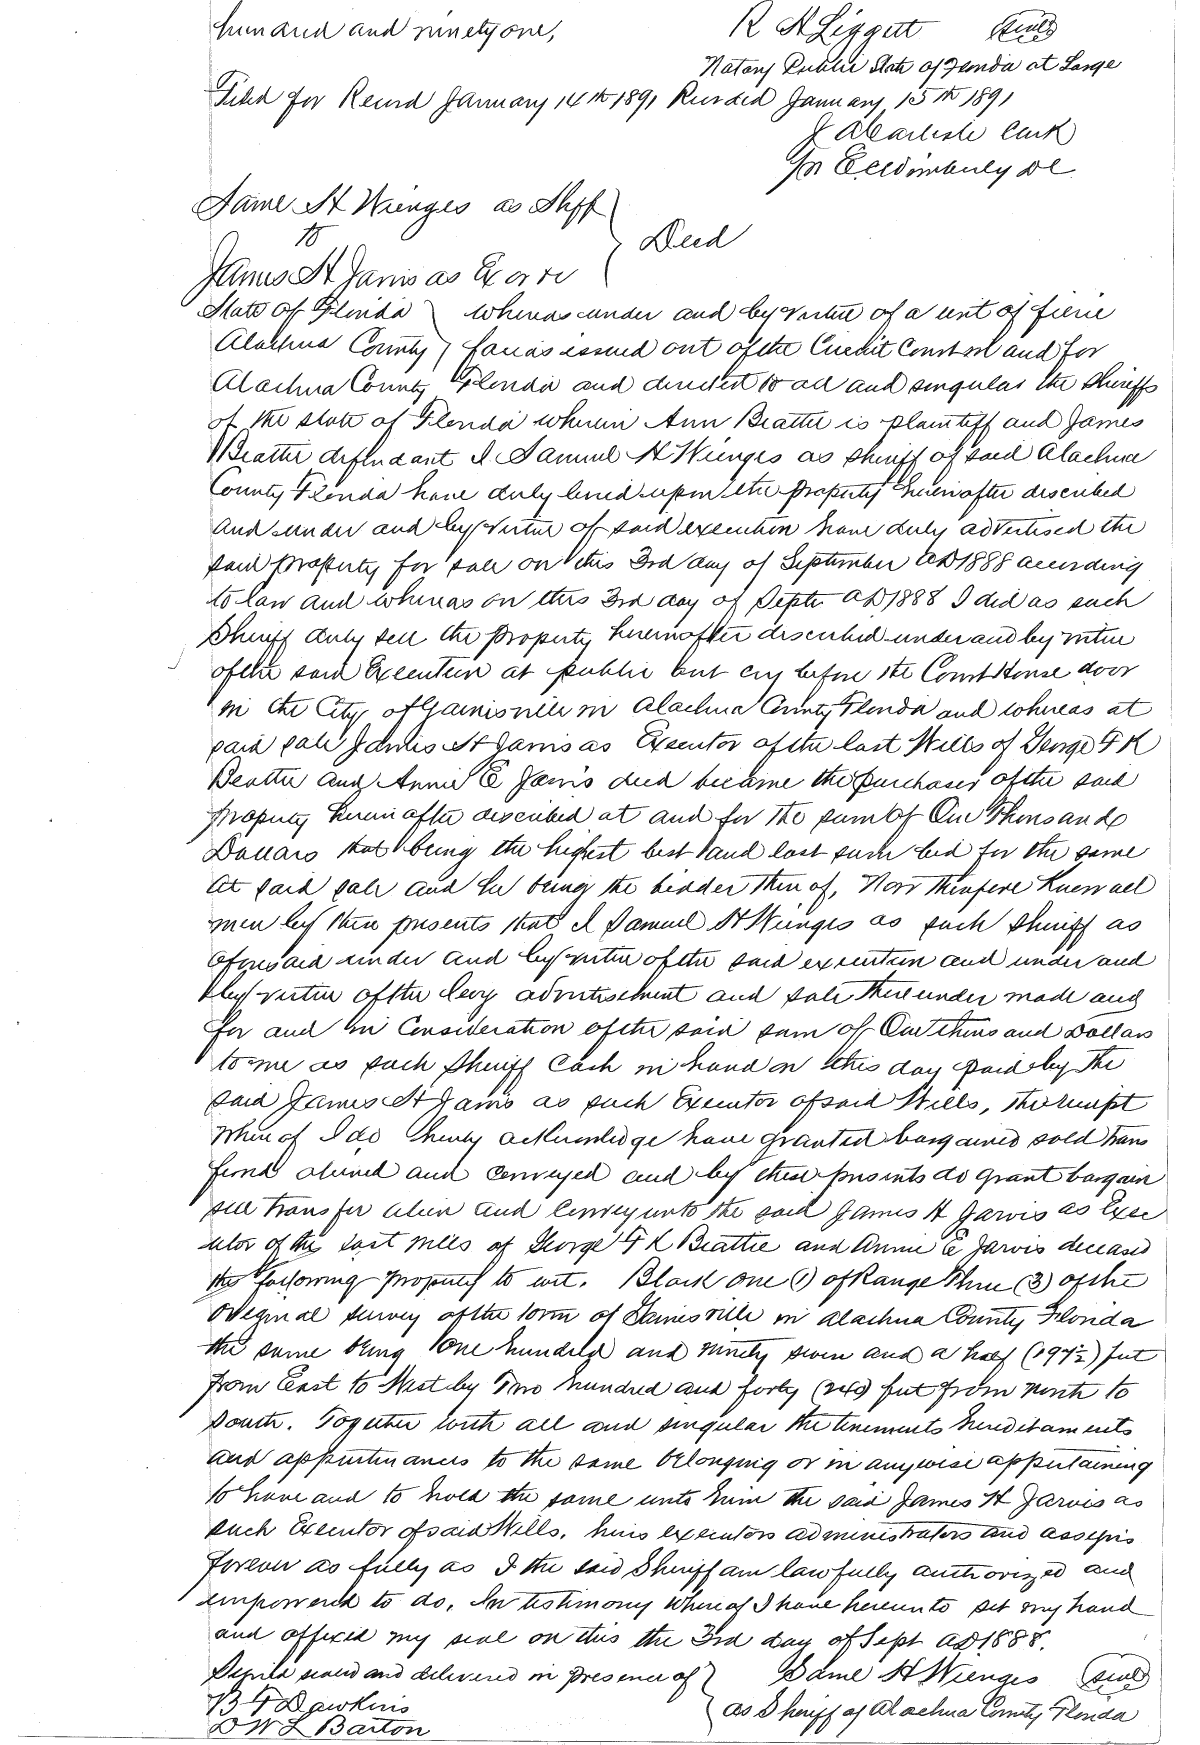 hundred and ninety one,
R H Liggett (Seal)
Notary Public State of Florida at Large
Filed for Record January 14th 1891 Recorded January 15th 1891
J A Carlisle Clerk
DC
Saml H Wienges as Shff
to
Deed
James H Jarvis as Exor &c
State of Florida } whereas under and by virtue of a writ of fierie
Alachua County } facias issued out of the Circuit Court in and for
Alachua County Florida and directed to all and singular the Sheriffs
of the state of Florida wherein Ann Beattie is plaintiff and James
Beattie defendant I Samuel H Wienges as sheriff of said Alachua
County Florida have duly levied upon the property hereinafter described
and under and by virtue of said execution have duly advertised the
said property for sale on this 3rd day of September AD 1888 according
to law and whereas on this 3rd day of Septr AD 1888 I did as such
Sheriff duly sell the property hereinafter described under and by virtue
of the said Execution at public out cry before the Court House door
in the City of Gainesville in Alachua County Florida and whereas at
said sale James H Jarvis as Executor of the last Wills of George F K
Beattie and Annie E Jarvis decd became the purchaser of the said
property herein after described at and for the sum of One Thousand
Dollars that being the highest best and last sum bid for the same
at said sale and he being the bidder therof, Now Therefore Know all
men by these presents that I Samuel H Wienges as such Sheriff as
aforesaid under and by virtue of the said execution and under and
by virtue of the levy advertisement and sale thereunder made and
for and in Consideration of the said sum of One thousand Dollars
to me as such Sheriff Cash in hand on this day paid by the
said James H Jarvis as such Executor of said Wills, the receipt
whereof I do hereby acknowledge have granted bargained sold trans
ferred aliened and conveyed and by these presents do grant bargain
sell transfer alien and convey unto the said James H Jarvis as Exec
utor of the last Wills of George F K Beattie and Annie E Jarvis deceased
the following property to wit. Block one (1) of Range Three (3) of the
Original survey of the town of Gainesville in Alachua County Florida
the same being One hundred and ninety seven and a half (197½) feet
from East to West by Two hundred and forty (240) feet from north to
south. Together with all and singular the tenements hereditaments
and appurtenances to the same belonging or in anywise appertaining
to have and to hold the same unto him the said James H Jarvis as
such Executor of said Wills, heirs executors administrators and assigns
forever as fully as I the said Sheriff am lawfully authorized and
empowered to do. In testimony Whereof I have hereunto set my hand
and affixed my seal on this the 3rd day of Sept AD 1888.
sealed and delivered in presence of } Saml H Wienges (Seal)
B F Dawkins
as Sheriff of Alachua County Florida
D W L Barton